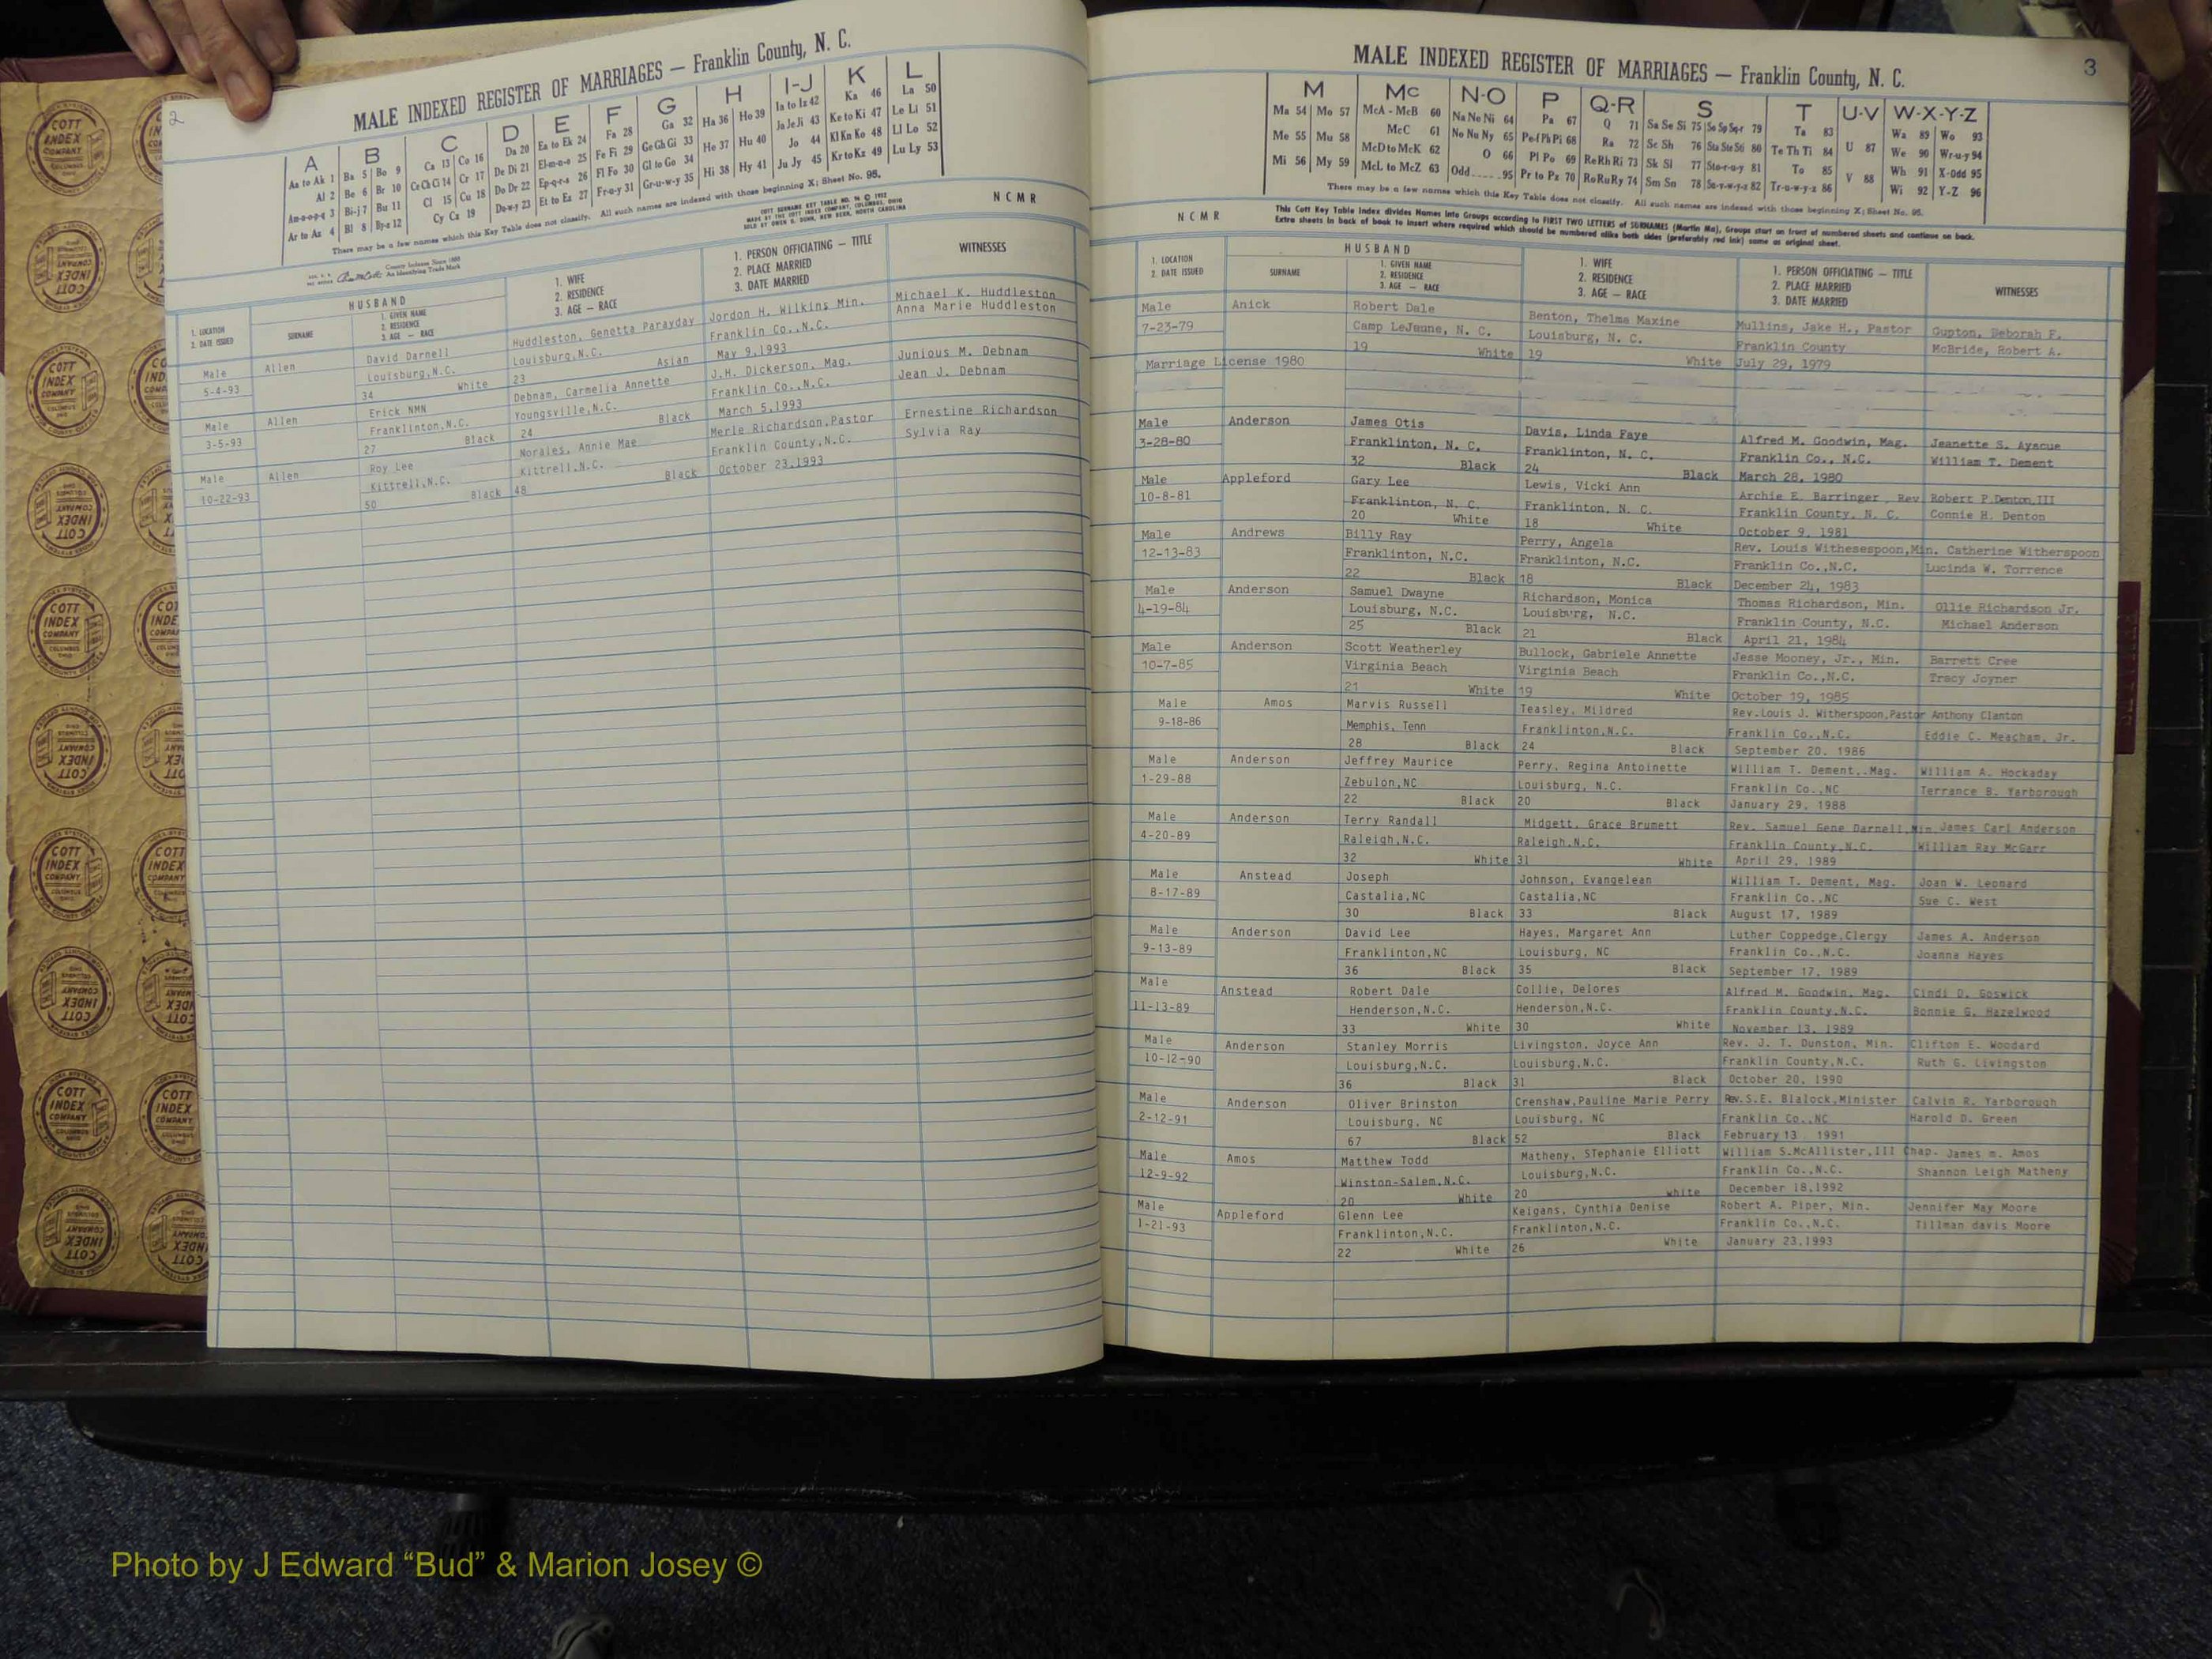 2
MALE INDEXED REGISTER OF MARRIAGES — Franklin County, N. C.
A B C D E F G H I-J K L
Aa to Ak 1 Ba 5 Bo 9 Ca 13 Co 16 Da 20 Ea to Ek 24 Fa 28 Ga 32 Ha 36 Ho 39 Ia to Iz 42 Ka 46 La 50
Al 2 Be 6 Br 10 Ce Ch Ci 14 Cr 17 De Di 21 El-m-n-o 25 Fe Fi 29 Ge Gh Gi 33 He 37 Hu 40 Ja Je Ji 43 Ke to Ki 47 Le Li 51
Am-n-o-p-q 3 Bi-j 7 Bu 11 Cl 15 Cu 18 Do Dr 22 Ep-q-r-s 26 Fl Fo 30 Gl to Go 34 Hi 38 Hy 41 Jo 44 Kl Kn Ko 48 Ll Lo 52
Ar to Az 4 Bl 8 By-z 12 Cy Cz 19 Du-w-y 23 Et to Ez 27 Fr-u-y 31 Gr-u-w-y 35 Ju Jy 45 Kr to Kz 49 Lu Ly 53
There may be a few names which this Key Table does not classify. All such names are indexed with those beginning X; Sheet No. 95.
COTT SURNAME KEY TABLE NO.
MADE BY THE COTT INDEX COMPANY, COLUMBUS, OHIO
SOLD BY OWEN G. DUNN, NEW BERN, NORTH CAROLINA
N C M R
County Indexes Since 1888
An Identifying Trade Mark
1. LOCATION
2. DATE ISSUED
HUSBAND
SURNAME
1. GIVEN NAME
2. RESIDENCE
3. AGE — RACE
1. WIFE
2. RESIDENCE
3. AGE — RACE
1. PERSON OFFICIATING — TITLE
2. PLACE MARRIED
3. DATE MARRIED
WITNESSES
Male Allen David Darnell Huddleston, Genetta Parayday Jordon H. Wilkins Min. Michael K. Huddleston
5-4-93 Louisburg,N.C. Louisburg,N.C. Franklin Co.,N.C. Anna Marie Huddleston
34 White 23 Asian May 9,1993
Male Allen Erick NMN Debnam, Carmelia Annette J.H. Dickerson, Mag. Junious M. Debnam
3-5-93 Franklinton,N.C. Youngsville,N.C. Franklin Co.,N.C. Jean J. Debnam
27 Black 24 Black March 5,1993
Male Allen Roy Lee Norales, Annie Mae Merle Richardson,Pastor Ernestine Richardson
10-22-93 Kittrell,N.C. Kittrell,N.C. Franklin County,N.C. Sylvia Ray
50 Black 48 Black October 23,1993
3
MALE INDEXED REGISTER OF MARRIAGES — Franklin County, N. C.
M Mc N-O P Q-R S T U-V W-X-Y-Z
Ma 54 Mo 57 McA - McB 60 Na Ne Ni 64 Pa 67 Q 71 Sa Se Si 75 So Sp Sq-r 79 Ta 83 U 87 Wa 89 Wo 93
Me 55 Mu 58 McC 61 No Nu Ny 65 Pe-f Ph Pi 68 Ra 72 Sc Sh 76 Sta Ste Sti 80 Te Th Ti 84 V 88 We 90 Wr-u-y 94
Mi 56 My 59 McD to McK 62 O 66 Pl Po 69 Re Rh Ri 73 Sk Sl 77 Sto-r-u-y 81 To 85 Wh 91 X-Odd 95
McL to McZ 63 Odd 95 Pr to Pz 70 Ro Ru Ry 74 Sm Sn 78 Su-v-w-y-z 82 Tr-u-w-y-z 86 Wi 92 Y-Z 96
There may be a few names which this Key Table does not classify. All such names are indexed with those beginning X; Sheet No. 95.
N C M R
This Cott Key Table Index divides Names into Groups according to FIRST TWO LETTERS of SURNAMES (Martin Ma), Groups start on front of numbered sheets and continue on back.
Extra sheets in back of book to insert where required which should be numbered alike both sides (preferably red ink) same as original sheet.
1. LOCATION
2. DATE ISSUED
HUSBAND
SURNAME
1. GIVEN NAME
2. RESIDENCE
3. AGE — RACE
1. WIFE
2. RESIDENCE
3. AGE — RACE
1. PERSON OFFICIATING — TITLE
2. PLACE MARRIED
3. DATE MARRIED
WITNESSES
Male Anick Robert Dale Benton, Thelma Maxine Mullins, Jake H., Pastor Gupton, Deborah F.
7-23-79 Camp LeJeune, N. C. Louisburg, N. C. Franklin County McBride, Robert A.
19 White 19 White July 29, 1979
Marriage License 1980
Male Anderson James Otis Davis, Linda Faye Alfred M. Goodwin, Mag. Jeanette S. Ayscue
3-28-80 Franklinton, N. C. Franklinton, N. C. Franklin Co., N.C. William T. Dement
32 Black 24 Black March 28, 1980
Male Appleford Gary Lee Lewis, Vicki Ann Archie E. Barringer, Rev Robert P.Denton,III
10-8-81 Franklinton, N. C. Franklinton, N. C. Franklin County, N. C. Connie H. Denton
20 White 18 White October 9, 1981
Male Andrews Billy Ray Perry, Angela Rev. Louis Withesespoon,Min. Catherine Witherspoon
12-13-83 Franklinton, N.C. Franklinton, N.C. Franklin Co.,N.C. Lucinda W. Torrence
22 Black 18 Black December 24, 1983
Male Anderson Samuel Dwayne Richardson, Monica Thomas Richardson, Min. Ollie Richardson Jr.
4-19-84 Louisburg, N.C. Louisburg, N.C. Franklin County, N.C. Michael Anderson
25 Black 21 Black April 21, 1984
Male Anderson Scott Weatherley Bullock, Gabriele Annette Jesse Mooney, Jr., Min. Barrett Cree
10-7-85 Virginia Beach Virginia Beach Franklin Co.,N.C. Tracy Joyner
21 White 19 White October 19, 1985
Male Amos Marvis Russell Teasley, Mildred Rev.Louis J. Witherspoon,Pastor Anthony Clanton
9-18-86 Memphis, Tenn Franklinton,N.C. Franklin Co.,N.C. Eddie C. Meacham, Jr.
28 Black 24 Black September 20. 1986
Male Anderson Jeffrey Maurice Perry, Regina Antoinette William T. Dement,.Mag. William A. Hockaday
1-29-88 Zebulon,NC Louisburg, N.C. Franklin Co.,NC Terrance B. Yarborough
22 Black 20 Black January 29, 1988
Male Anderson Terry Randall Midgett, Grace Brumett Rev. Samuel Gene Darnell,Min James Carl Anderson
4-20-89 Raleigh,N.C. Raleigh,N.C. Franklin County,N.C. William Ray McGarr
32 White 31 White April 29, 1989
Male Anstead Joseph Johnson, Evangelean William T. Dement, Mag. Joan W. Leonard
8-17-89 Castalia,NC Castalia,NC Franklin Co.,NC Sue C. West
30 Black 33 Black August 17, 1989
Male Anderson David Lee Hayes, Margaret Ann Luther Coppedge,Clergy James A. Anderson
9-13-89 Franklinton,NC Louisburg, NC Franklin Co.,N.C. Joanna Hayes
36 Black 35 Black September 17, 1989
Male Anstead Robert Dale Collie, Delores Alfred M. Goodwin, Mag. Cindi D. Goswick
11-13-89 Henderson,N.C. Henderson,N.C. Franklin County,N.C. Bonnie G. Hazelwood
33 White 30 White November 13, 1989
Male Anderson Stanley Morris Livingston, Joyce Ann Rev. J. T. Dunston, Min. Clifton E. Woodard
10-12-90 Louisburg,N.C. Louisburg,N.C. Franklin County,N.C. Ruth G. Livingston
36 Black 31 Black October 20, 1990
Male Anderson Oliver Brinston Crenshaw,Pauline Marie Perry Rev.S.E. Blalock,Minister Calvin R. Yarborough
2-12-91 Louisburg, NC Louisburg, NC Franklin Co.,NC Harold D. Green
67 Black 52 Black February 13 1991
Male Amos Matthew Todd Matheny, STephanie Elliott William S.McAllister,III Chap. James m. Amos
12-9-92 Winston-Salem,N.C. Louisburg,N.C. Franklin Co.,N.C. Shannon Leigh Matheny
20 White 20 white December 18,1992
Male Appleford Glenn Lee Keigans, Cynthia Denise Robert A. Piper, Min. Jennifer May Moore
1-21-93 Franklinton,N.C. Franklinton,N.C. Franklin Co.,N.C. Tillman davis Moore
22 White 26 White January 23,1993
COTT
INDEX
COMPANY
COLUMBUS
OHIO
Photo by J Edward “Bud” & Marion Josey ©